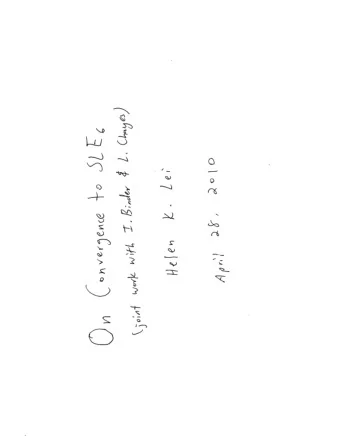 On Convergence to SLE₆
(joint work with I. Binder & L. Chayes)
Helen K. Lei
April 28, 2010